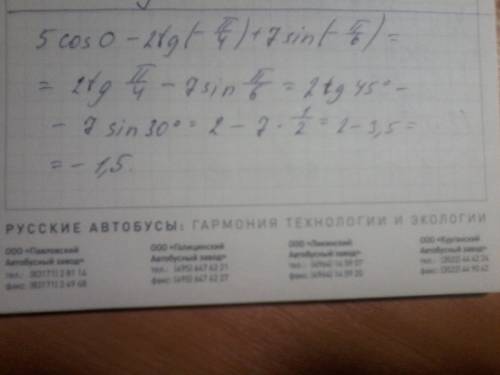 5 cos 0 - 2tg(-π/4) + 7 sin(-π/6) =
= 2tg π/4 - 7 sin π/6 = 2 tg 45° -
- 7 sin 30° = 2 - 7 · 1/2 = 2 - 3,5 =
= - 1,5.
РУССКИЕ АВТОБУСЫ: ГАРМОНИЯ ТЕХНОЛОГИИ И ЭКОЛОГИИ
ООО «Павловский
Автобусный завод»
тел.: (83171) 2 81 14
факс: (83171) 2 49 68
ООО «Голицинский
Автобусный завод»
тел.: (495) 647 62 21
факс: (495) 647 62 27
ООО «Ликинский
Автобусный завод»
тел.: (4964) 14 59 27
факс: (4964) 14 59 20
ООО «Курганский
Автобусный завод»
тел.: (3522) 44 42 24
факс: (3522) 44 90 42